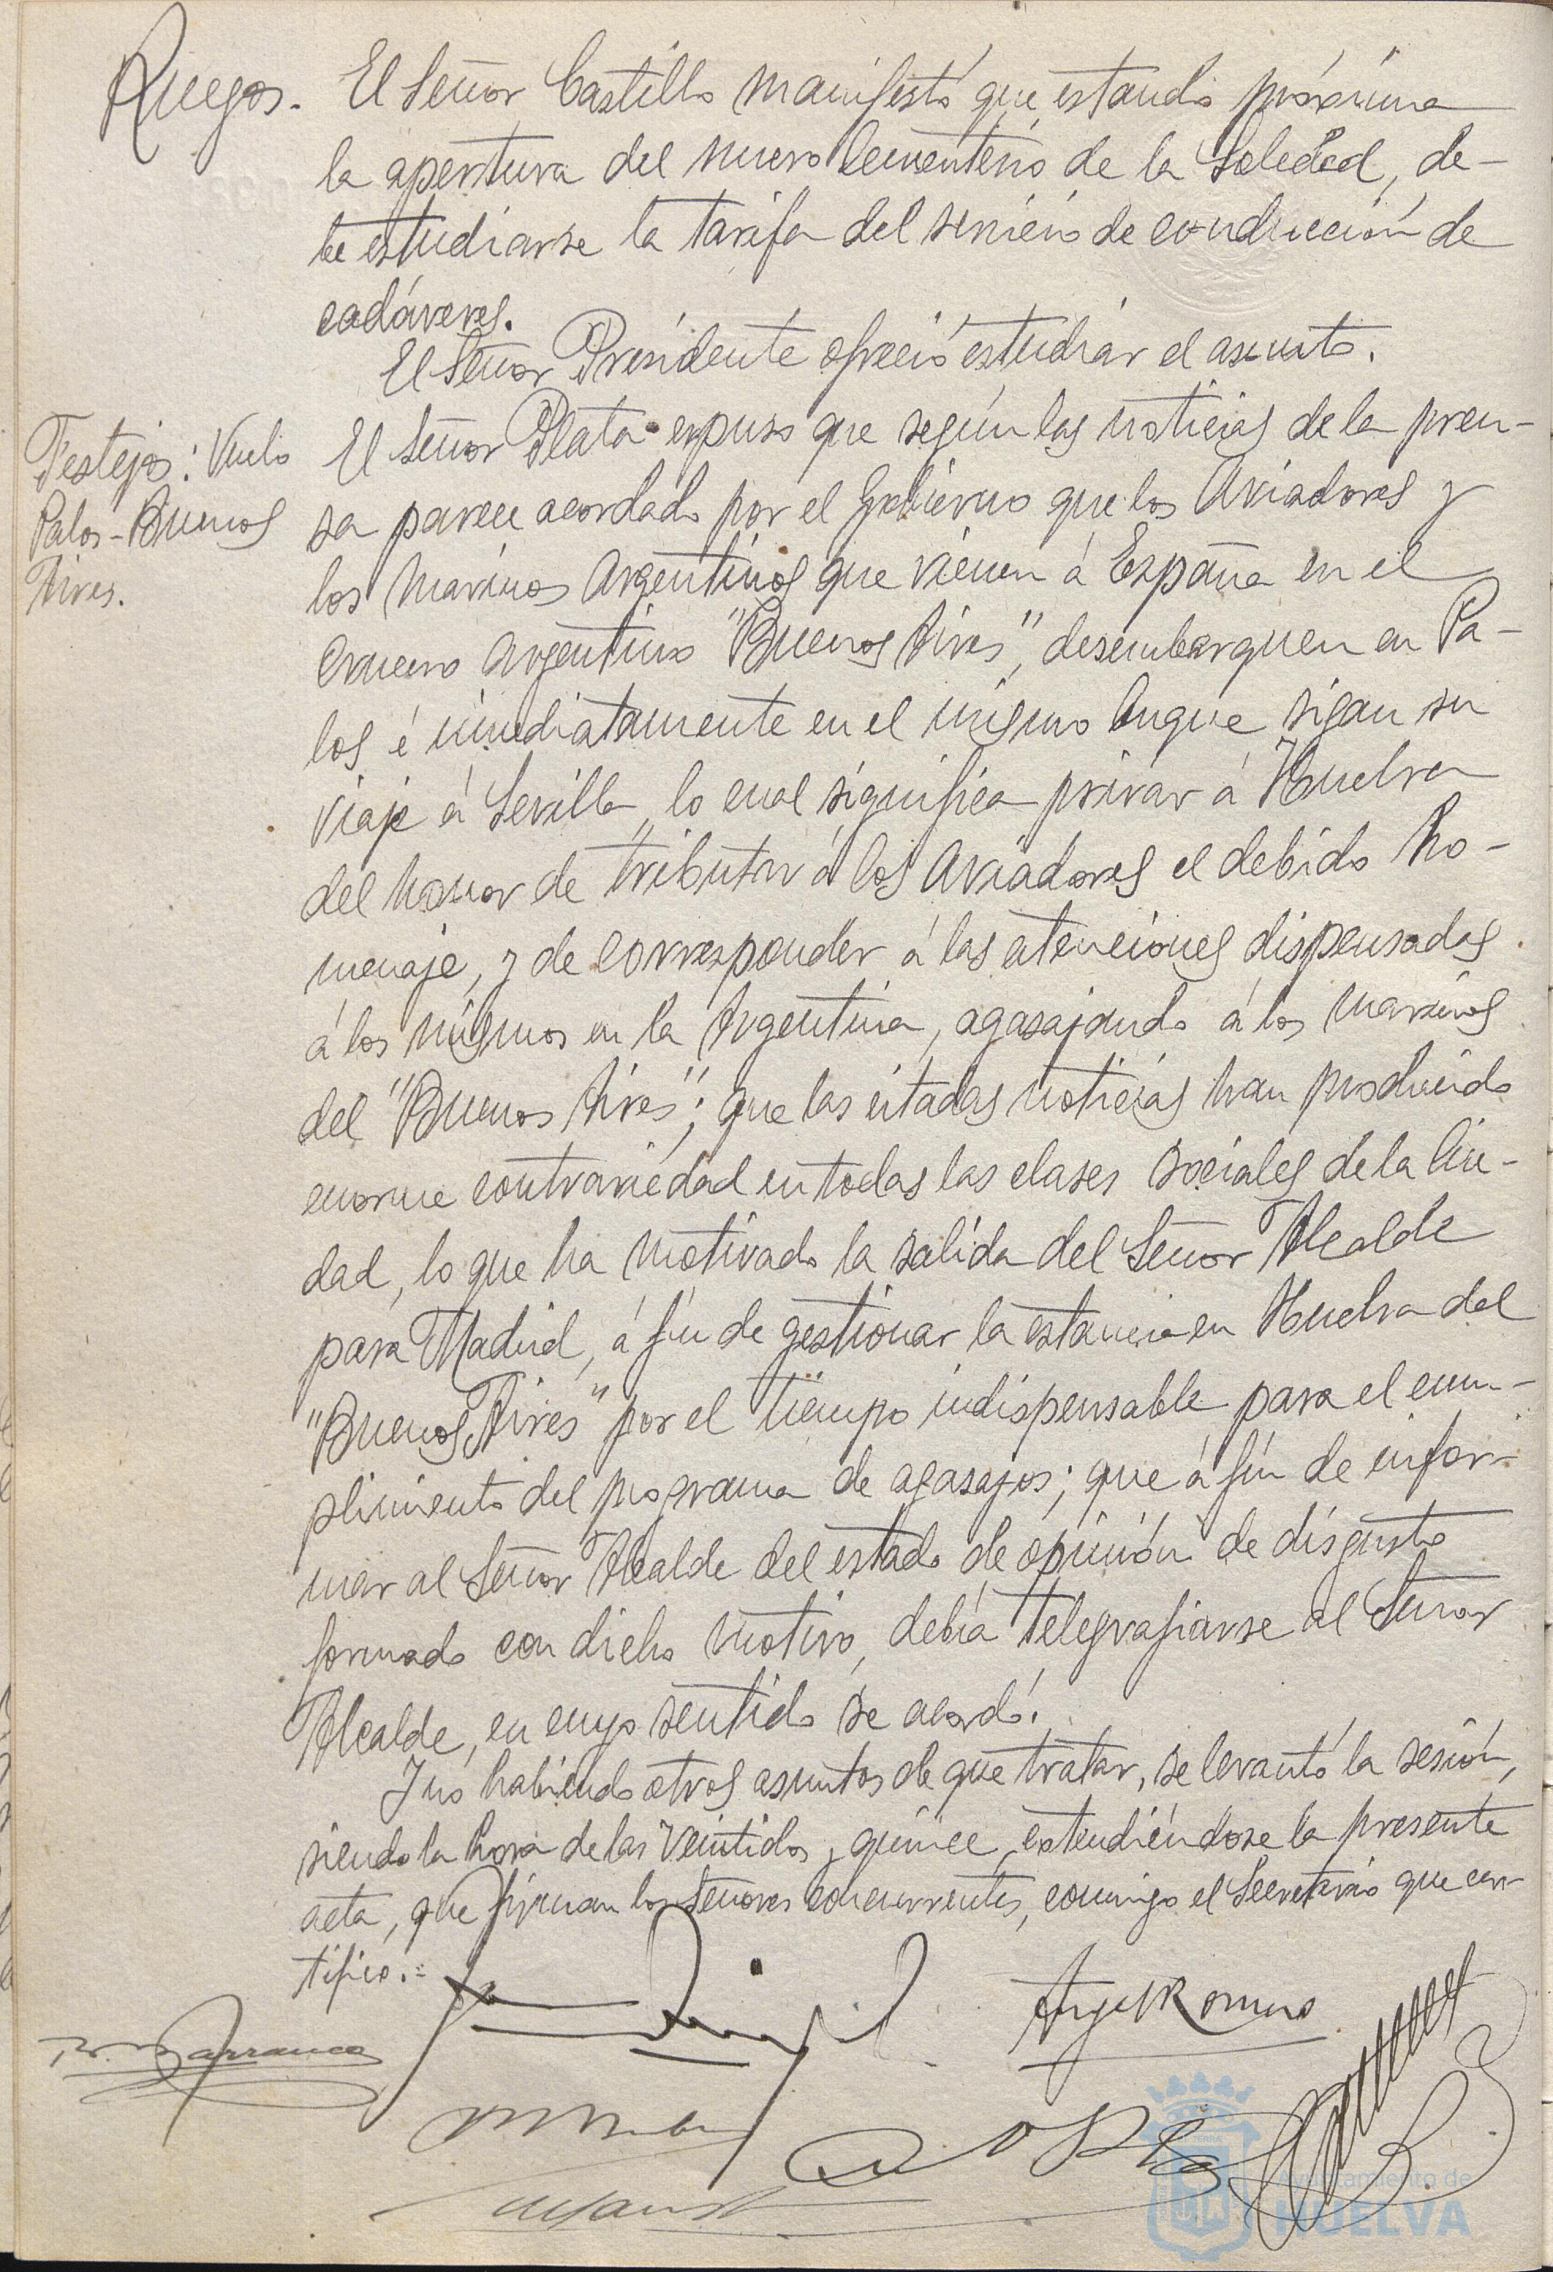 Ruegos. El Señor Castillo manifestó que, estando próxima
la apertura del nuevo Cementerio de la Soledad, de-
be estudiarse la tarifa del servicio de conducción de
cadáveres.
El Señor Presidente ofreció estudiar el asunto.
Festejos: Vuelo
Palos-Buenos
Aires.
El Señor Plata expuso que según las noticias de la pren-
sa parece acordado por el Gobierno que los Aviadores y
los marinos Argentinos que vienen á España en el
Crucero Argentino "Buenos Aires", desembarquen en Pa-
los é inmediatamente en el mismo buque sigan su
viaje á Sevilla, lo cual significa privar á Huelva
del honor de tributar á los Aviadores el debido ho-
menaje, y de corresponder á las atenciones dispensadas
á los mismos en la Argentina, agasajando á los marinos
del "Buenos Aires"; que las citadas noticias han producido
enorme contrariedad en todas las clases sociales de la Ciu-
dad, lo que ha motivado la salida del Señor Alcalde
para Madrid, á fin de gestionar la estancia en Huelva del
"Buenos Aires" por el tiempo indispensable para el cum-
plimiento del programa de agasajos; que á fin de infor-
mar al Señor Alcalde del estado de opinión de disgusto
formado con dicho motivo, debía telegrafiarse al Señor
Alcalde, en cuyo sentido se acordó.
Y no habiendo otros asuntos de que tratar, se levantó la sesión,
siendo la hora de las veintidos y quince, extendiéndose la presente
acta, que firman los Señores concurrentes, conmigo el Secretario que cer-
tifico.=
Barranco
Angel Romero
Ayuntamiento de
HUELVA